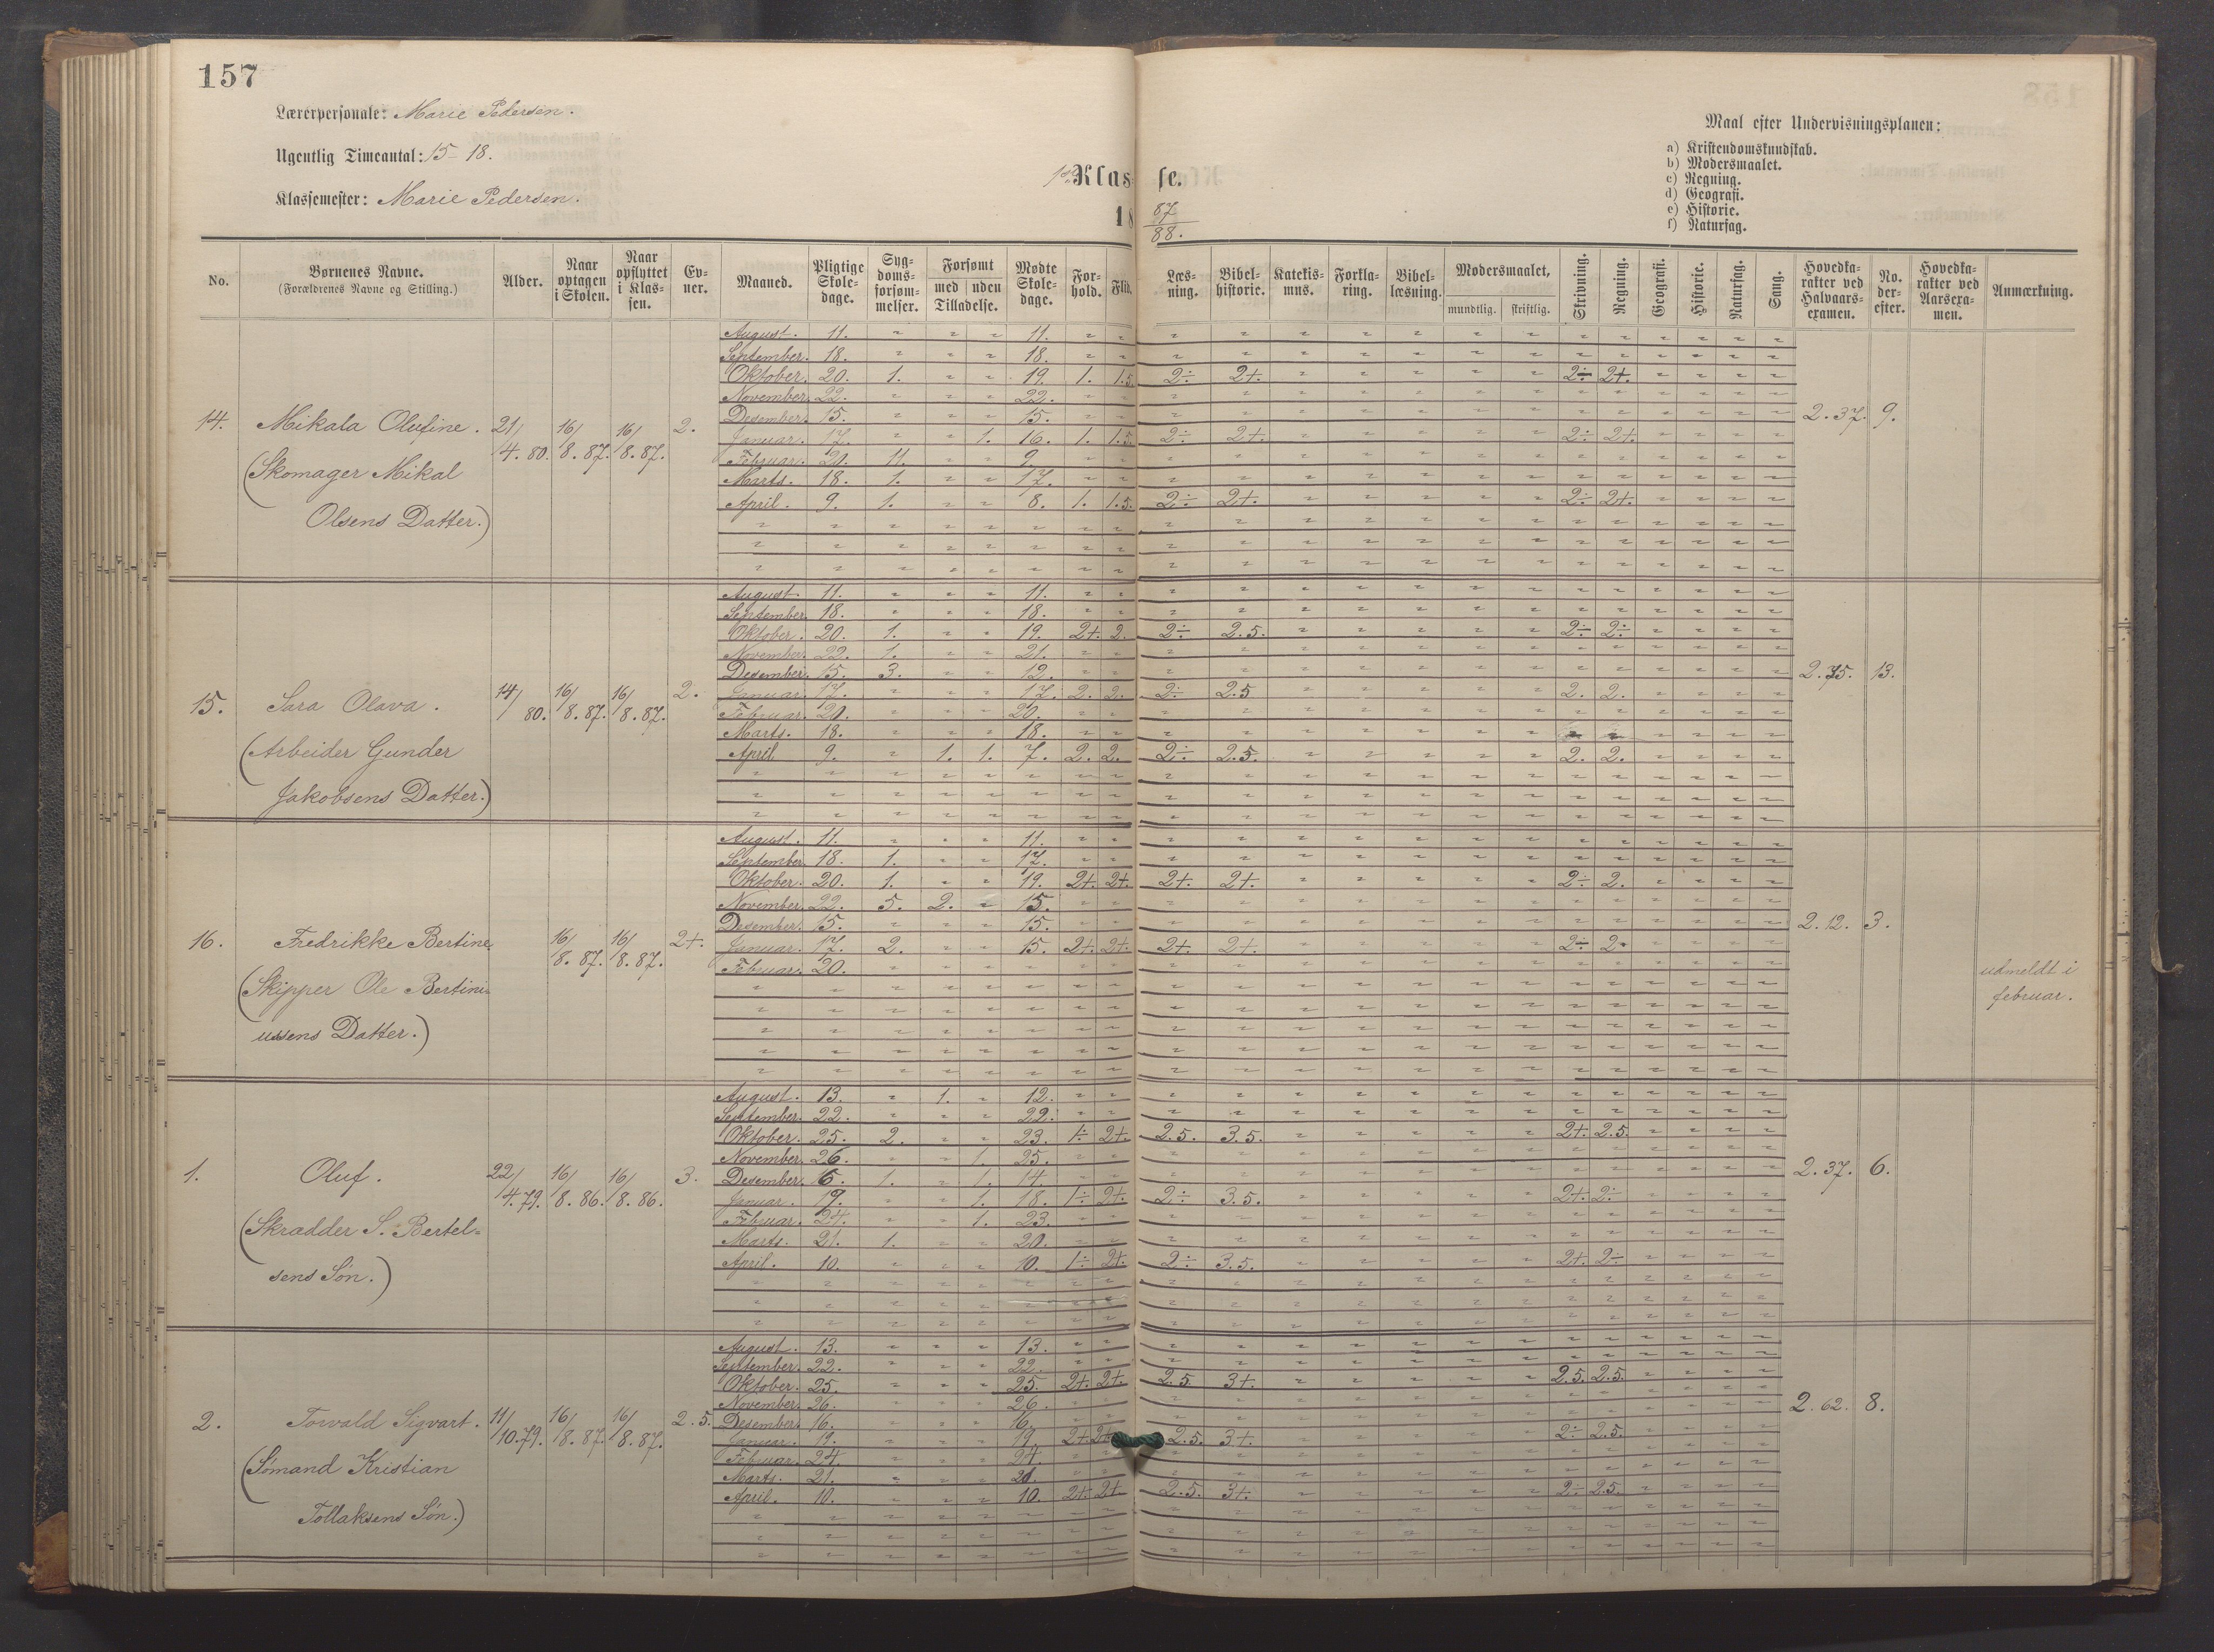 157
Lærerpersonale: Marie Pedersen.
Ugentlig Timeantal: 15-18.
Klassemester: Marie Pedersen.
Klasse.
18 87/88.
Maal efter Undervisningsplanen:
a) Kristendomskundskab.
b) Modersmaalet.
c) Regning.
d) Geografi.
e) Historie.
f) Naturfag.
No. | Børnenes Navne. (Forældrenes Navne og Stilling.) | Alder. | Naar optagen i Skolen. | Naar opflyttet i Klassen. | Evner. | Maaned. | Pligtige Skoledage. | Sygdomsforsømmelser. | Forsømt med Tilladelse. | Forsømt uden Tilladelse. | Mødte Skoledage. | Forhold. | Flid. | Læsning. | Bibelhistorie. | Katekismus. | Forklaring. | Bibellæsning. | Modersmaalet, mundtlig. | skriftlig. | Skrivning. | Regning. | Geografi. | Historie. | Naturfag. | Sang. | Hovedkarakter ved Halvaarsexamen. | No. derefter. | Hovedkarakter ved Aarsexamen. | Anmærkning.
14. Mikala Olufine. 21/4. 80. 16/8. 87. 16/8. 87. 2. 2.37. 9.
(Skomager Mikal
Olsens Datter.)
August. 11. " " " 11.
September. 18. " " " 18.
Oktober. 20. 1. " " 19. 1. 1.5. 2÷ 2+. 2÷ 2+.
November. 22. " " " 22.
Desember. 15. " " " 15.
Januar. 17. " " 1. 16. 1. 1.5. 2÷ 2+. 2÷ 2+.
Februar. 20. 11. " " 9.
Marts. 18. 1. " " 17.
April. 9. 1. " " 8. 1. 1.5. 2÷ 2+. 2÷ 2+.
15. Sara Olava. 14/ 80. 16/8. 87. 16/8. 87. 2. 2.75. 13.
(Arbeider Gunder
Jakobsens Datter.)
August. 11. " " " 11.
September. 18. " " " 18.
Oktober. 20. 1. " " 19. 2+. 2. 2÷ 2.5. 2÷ 2÷
November. 22. 1. " " 21.
Desember. 15. 3. " " 12.
Januar. 17. " " " 17. 2. 2. 2÷ 2.5 2. 2.
Februar. 20. " " " 20.
Marts. 18. " " " 18.
April 9. " 1. 1. 7. 2. 2. 2÷ 2.5. 2. 2.
16. Fredrikke Bertine 16/8. 87. 16/8. 87. 2+. 2.12. 3.
(Skipper Ole Bertini-
ussens Datter.)
August. 11. " " " 11.
September 18. 1. " " 17.
Oktober. 20. 1. " " 19. 2+. 2+. 2+. 2+. 2÷ 2.
November. 22. 5. 2. " 15.
Desember. 15. " " " 15.
Januar. 17. 2. " " 15. 2+. 2+. 2+. 2+. 2÷ 2.
Februar. 20.
udmeldt i
februar.
1. Oluf. 22/4. 79. 16/8. 86. 16/8. 86. 3. 2.37. 6.
(Skrædder S. Bertel=
sens Søn.)
August. 13. " 1. " 12.
September. 22. " " " 22.
Oktober. 25. 2. " " 23. 1÷ 2+. 2.5. 3.5. 2+. 2.5.
November. 26. " " 1. 25.
Desember. 16. 1. " 1. 14.
Januar. 19. " " 1. 18. 1÷ 2+. 2÷ 3.5. 2+. 2÷
Februar. 24. " " 1. 23.
Marts. 21. 1. " " 20.
April. 10. " " " 10. 1÷ 2+. 2÷ 3.5. 2+. 2÷
2. Torvald Sigvart. 11/10. 79. 16/8. 87. 16/8. 87. 2.5. 2.62. 8.
(Sømand Kristian
Tollaksens Søn.)
August. 13. " " " 13.
September. 22. " " " 22.
Oktober. 25. " " " 25. 2+. 2+. 2.5. 3+. 2.5. 2.5.
November. 26. " " " 26.
Desember. 16. " " " 16.
Januar. 19. " " " 19. 2+. 2+. 2.5. 3+. 2÷ 2.5.
Februar. 24. " " " 24.
Marts. 21. " " " 21.
April. 10. " " " 10. 2+. 2+ 2.5. 3+. 2÷ 2.5.